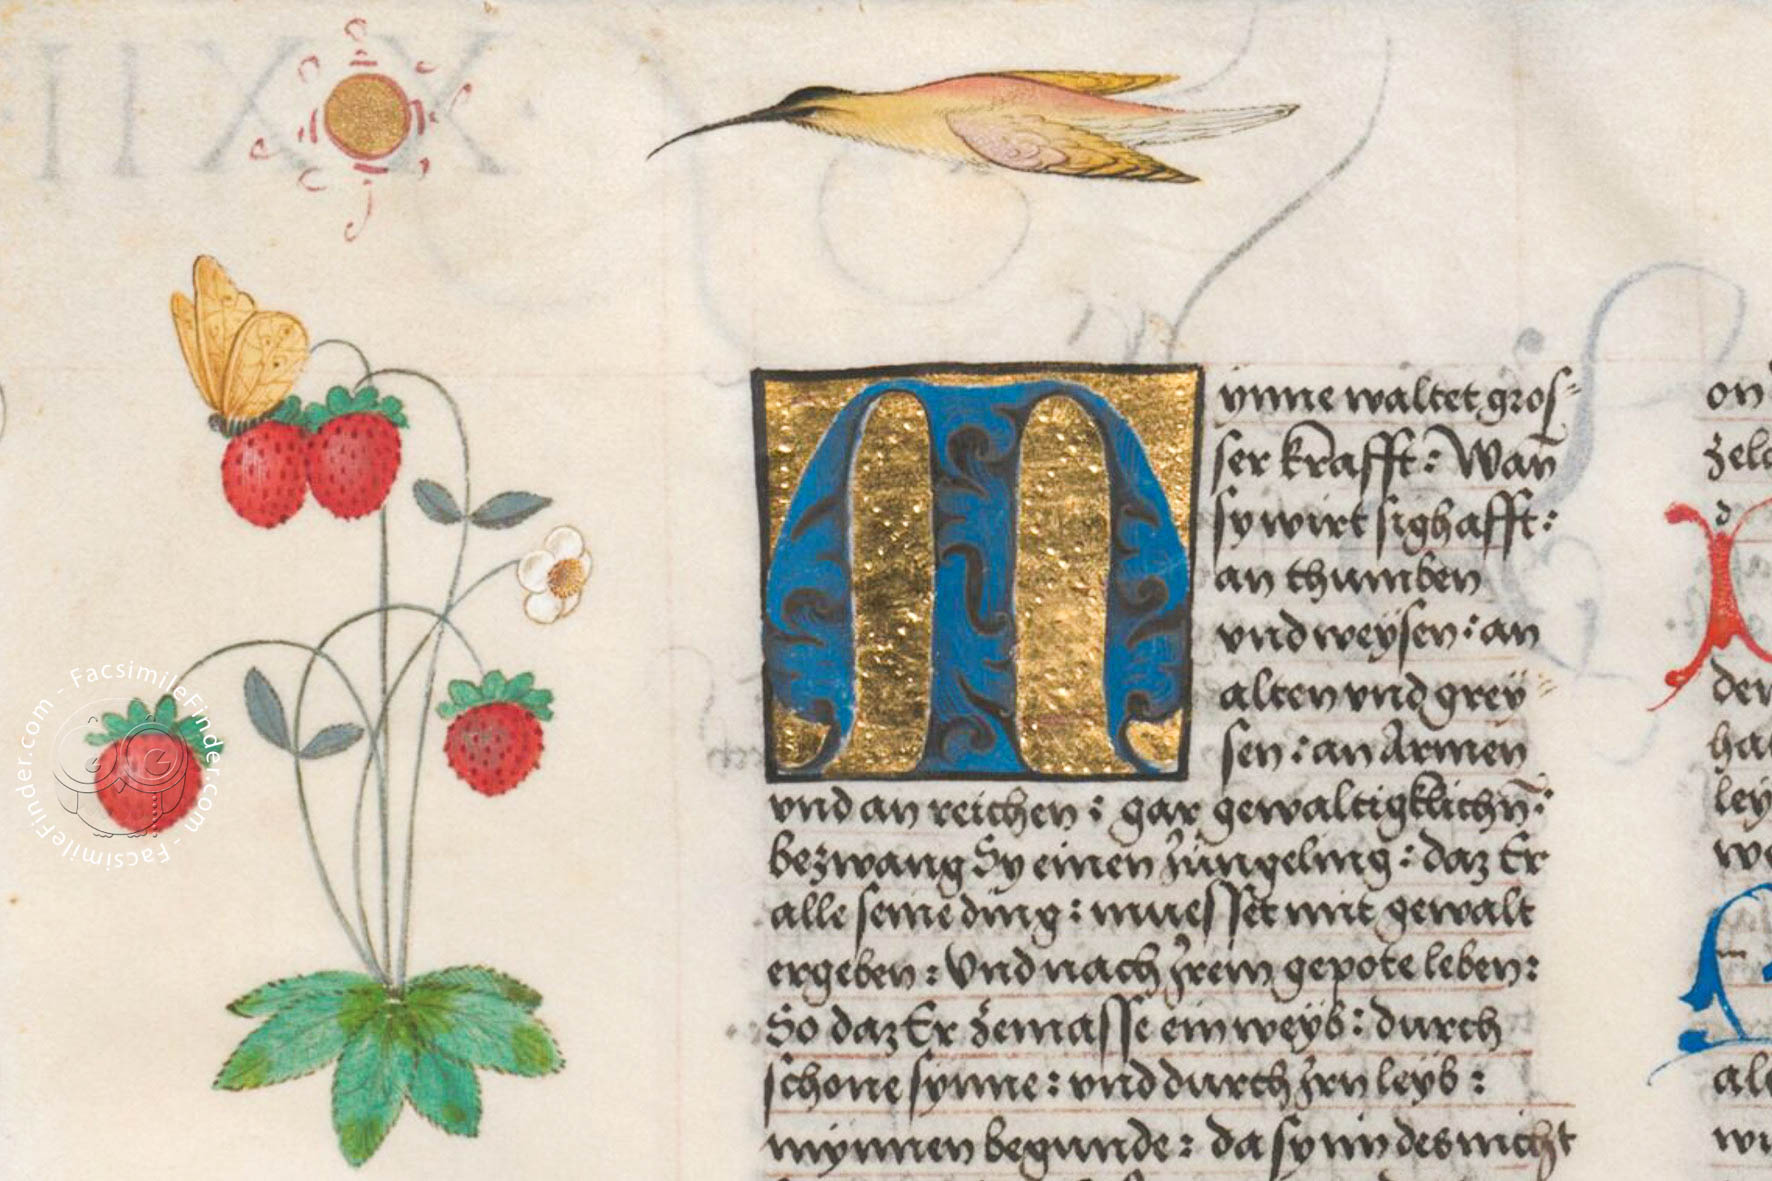 M
ynne waltet gros⸗
ser krafft: Wan̄
sy wirt sighafft:
an thumben
vnd weÿsen: an
alten vnd greÿ⸗
sen: an Armen
vnd an reichen: gar gewaltigklichn̄:
bezwang Sy einen Jüngeling: daz Er
alle seine ding: muesset mit gewalt
ergeben: Vnd nach Jrem gepote leben:
So daz Er Zemasse ein weÿb: durch
schone synne: vnd durch Jrn leÿb:
mÿnnen begunde: da sÿ im des nicht
on
Zele
d
der
hat
leÿ
we
ale
FacsimileFinder.com - FacsimileFinder.com - FacsimileFinder.com